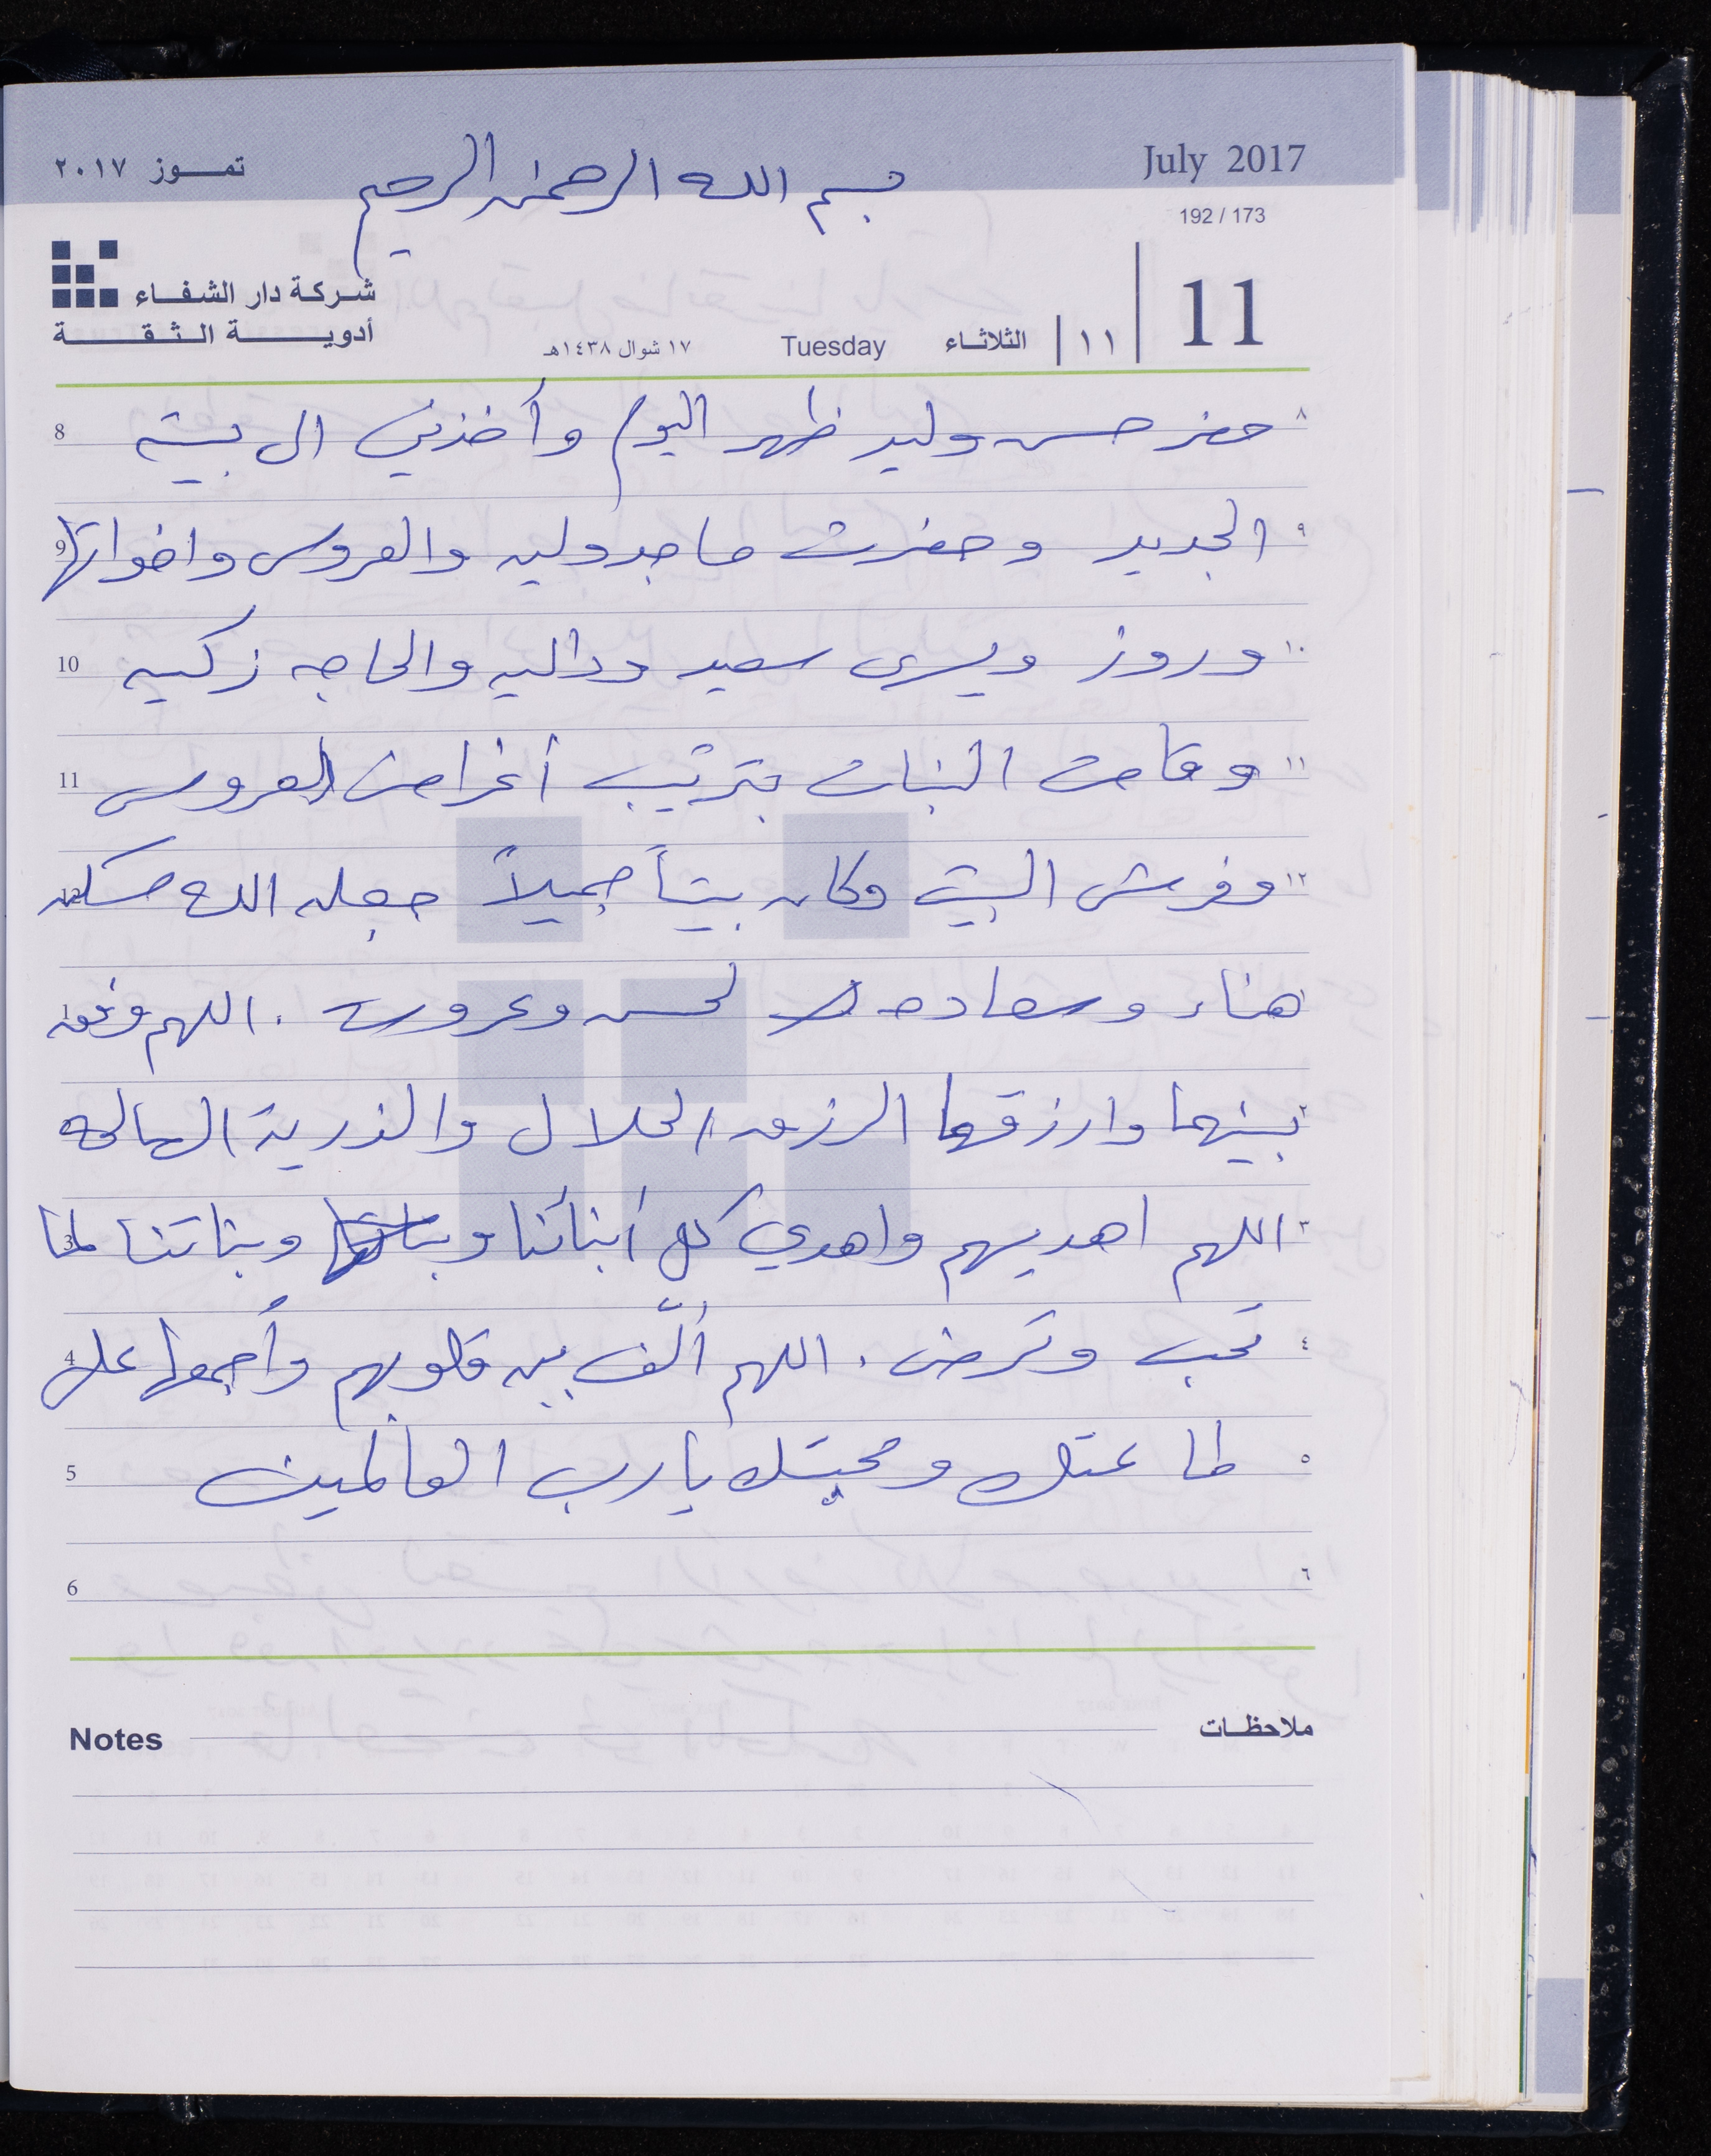 July 2017
تمـوز ٢٠١٧
بسم الله الرحمن الرحيم
192 / 173
شركة دار الشفاء
أدوية الثقة
11
١١
الثلاثاء
Tuesday
١٧ شوال ١٤٣٨هـ
٨ حضر حسن وليد ظهر اليوم وأخذني الى بيته 8
٩ الجديد وحضرت ماجد وليد والعروس واخواتها 9
١٠ وروز ويسرى سعيد وداليه والحاجه زكيه 10
١١ وقامت البنات بترتيب أغراض العروس 11
١٢ وفرش البيت وكان بيتاً جميلاً جعله الله مسكن 12
هناء وسعاده لحسن وعروسه . اللهم وفق 1
٢ بينهما وارزقهما الرزق الحلال والذرية الصالحه
٣ اللهم اهديهم واهدي كل أبنائنا وبناتنا لما 3
٤ تحب وترضى . اللهم ألّف بين قلوبهم وأجمعها على 4
٥ طاعتك ومحبتك يا رب العالمين 5
٦ 6
Notes ملاحظـات